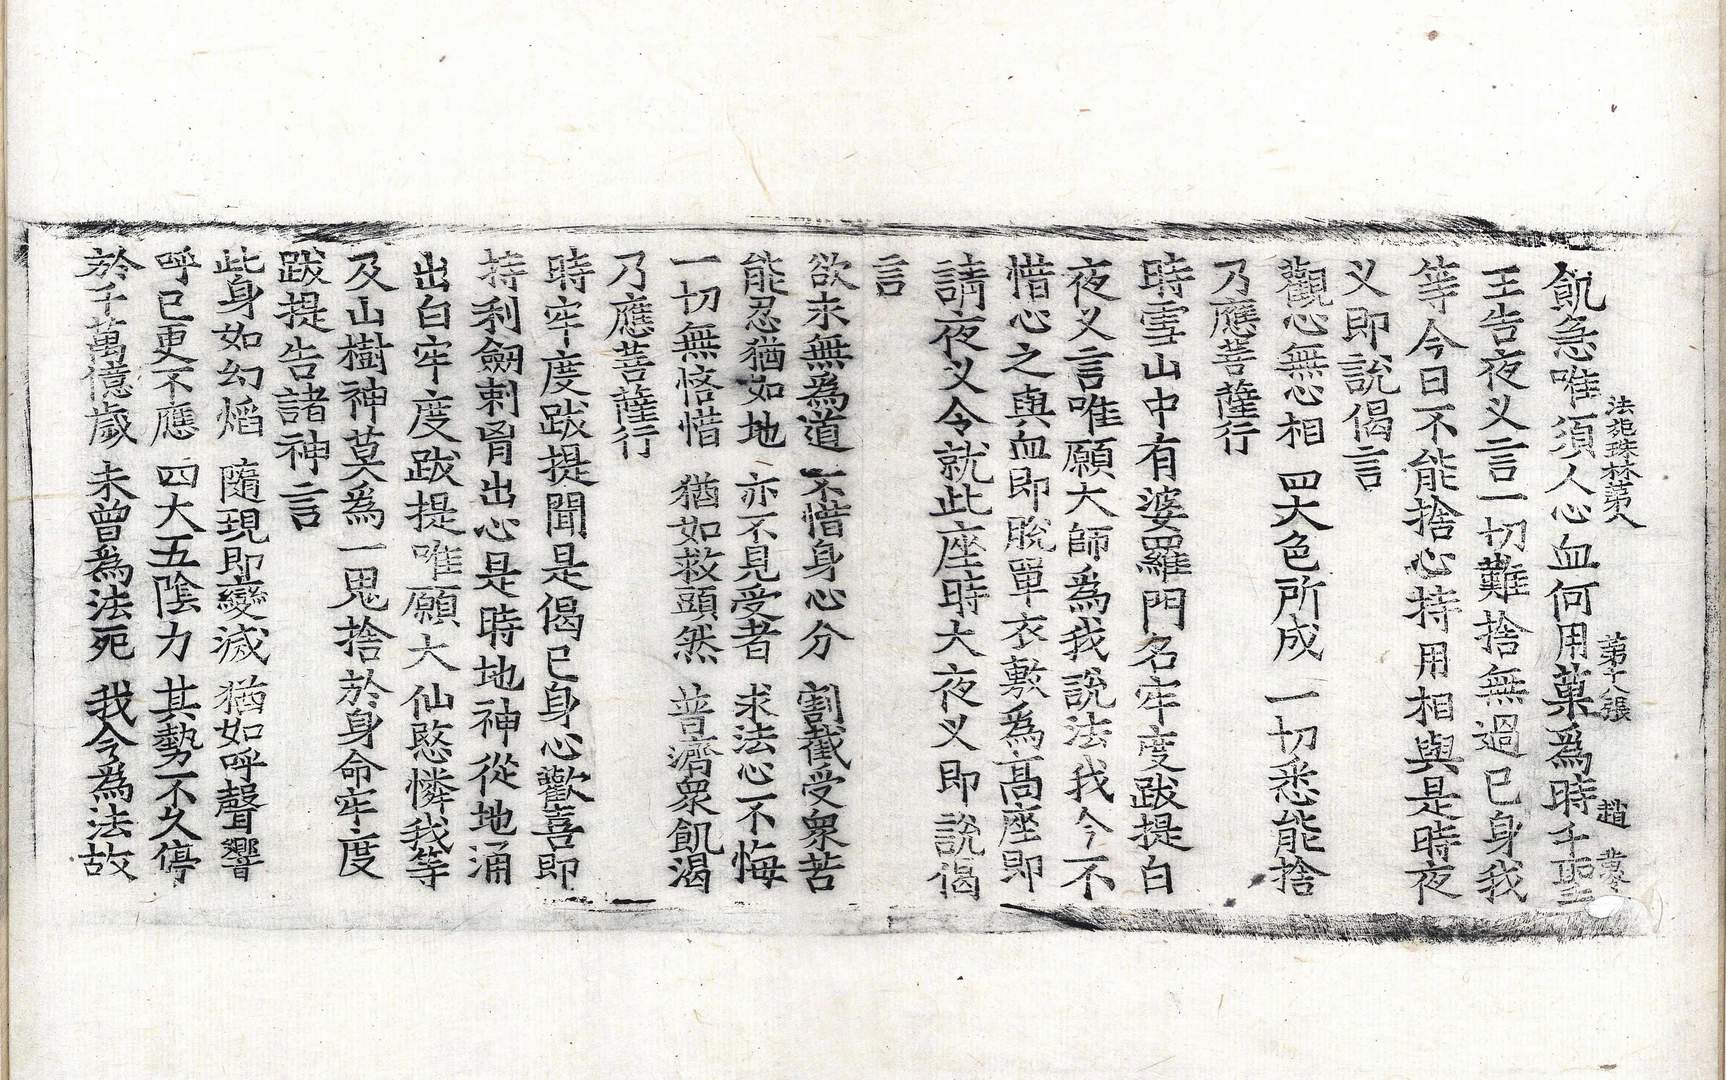 法苑珠林第八　第十八張　趙
飢急唯須人心血何用菓爲時千聖
王告夜叉言一切難捨無過己身我
等今日不能捨心持用相與是時夜
叉即說偈言
觀心無心相　四大色所成　一切悉能捨
乃應菩薩行
時雪山中有婆羅門名牢度跋提白
夜叉言唯願大師爲我說法我今不
惜心之與血即脫單衣敷爲高座即
請夜叉令就此座時大夜叉即說偈
言
欲求無為道　不惜身心分　割截受衆苦
能忍猶如地　亦不見受者　求法心不悔
一切無悋惜　猶如救頭然　普濟衆飢渴
乃應菩薩行
時牢度跋提聞是偈已身心歡喜即
持利劒刺胷出心是時地神從地涌
出白牢度跋提唯願大仙愍憐我等
及山樹神莫為一鬼捨於身命牢度
跋提告諸神言
此身如幻焰　隨現即變滅　猶如呼聲響
呼已更不應　四大五陰力　其勢不久停
於千萬億歲　未曾爲法死　我今為法故